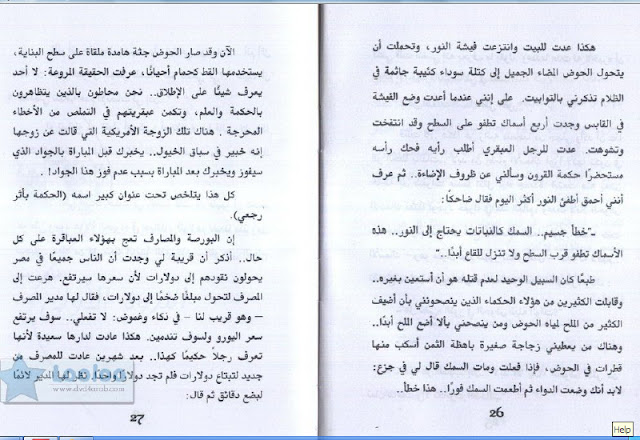 هكذا عدت للبيت وانتزعت فيشة النور، وتحملت أن
يتحول الحوض المضاء الجميل إلى كتلة سوداء كئيبة جاثمة في
الظلام تذكرني بالتوابيت. على إنني عندما أعدت وضع الفيشة
في القابس وجدت أربع أسماك تطفو على السطح وقد انتفخت
وتشوهت. عدت للرجل العبقري أطلب رأيه فحك رأسه
مستحضرًا حكمة القرون وسألني عن ظروف الإضاءة.. ثم عرف
أنني أحمق أطفئ النور أكثر اليوم فقال ضاحكًا:
ـ"خطأ جسيم.. السمك كالنباتات يحتاج إلى النور.. هذه
الأسماك تطفو قرب السطح ولا تنزل للقاع أبدًا.."
طبعًا كان السبيل الوحيد لعدم قتله هو أن أستعين بغيره..
وقابلت الكثيرين من هؤلاء الحكماء الذين ينصحونني بأن أضيف
الكثير من الملح لمياه الحوض ومن ينصحني بألا أضع الملح أبدًا..
وهناك من يعطيني زجاجة صغيرة باهظة الثمن أسكب منها
قطرات في الحوض، فإذا فعلت ومات السمك قال لي في جزع:
لابد أنك وضعت الدواء ثم أطعمت السمك فورًا.. هذا خطأ..
26
الآن وقد صار الحوض جثة هامدة ملقاة على سطح البناية،
يستخدمها القط كحمام أحيانًا، عرفت الحقيقة المروعة: لا أحد
يعرف شيئًا على الإطلاق.. نحن محاطون بالذين يتظاهرون
بالحكمة والعلم، وتكمن عبقريتهم في التملص من الأخطاء
المحرجة. هناك تلك الزوجة الأمريكية التي قالت عن زوجها
إنه خبير في سباق الخيول.. يخبرك قبل المباراة بالجواد الذي
سيفوز ويخبرك بعد المباراة بسبب عدم فوز هذا الجواد!.
كل هذا يتلخص تحت عنوان كبير اسمه (الحكمة بأثر
رجعي).
إن البورصة والمصارف تعج بهؤلاء العباقرة على كل
حال.. أذكر أن قريبة لي وجدت أن الناس جميعًا في مصر
يحولون نقودهم إلى دولارات لأن سعرها سيرتفع. هرعت إلى
المصرف لتحول مبلغًا ضخمًا إلى دولارات، فقال لها مدير المصرف
– وهو قريب لنا – في ذكاء وغموض: لا تفعلي.. سوف يرتفع
سعر اليورو ولسوف تندمين. هكذا عادت لدارها سعيدة لأنها
تعرف رجلاً حكيمًا كهذا.. بعد شهرين عادت للمصرف من
جديد لتبتاع دولارات فلم تجد دولارًا واحدًا. نظر لها المدير لائمًا
لبضع دقائق ثم قال:
27
www.dvd4arab.com
Help